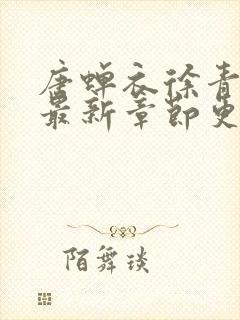 唐蝉衣徐青
最新章节更
陌舞琰